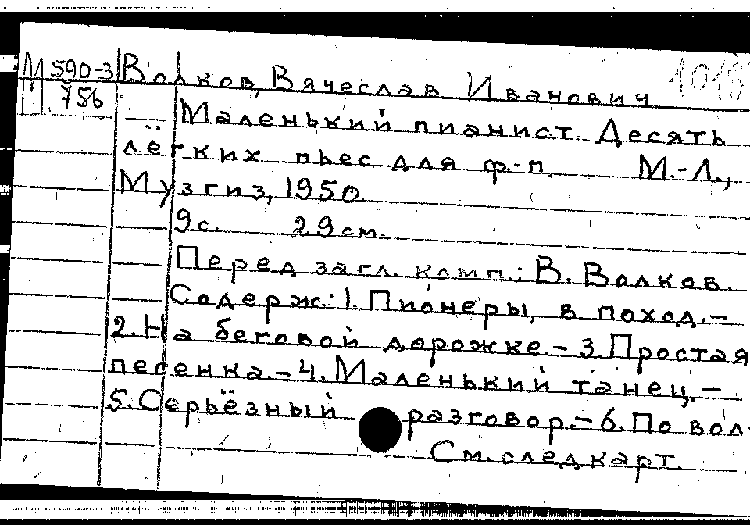 М 590-3 Волков, Вячеслав Иванович
М 756
Маленький пианист. Десять
лёгких пьес для ф-п. М.-Л.,
Музгиз, 1950.
9 с. 29 см.
Перед загл. комп.: В. Волков.
Содерж: 1. Пионеры, в поход. –
2. На беговой дорожке. – 3. Простая
песенка. – 4. Маленький танец. –
5. Серьёзный разговор. – 6. По вол-
См. след карт.